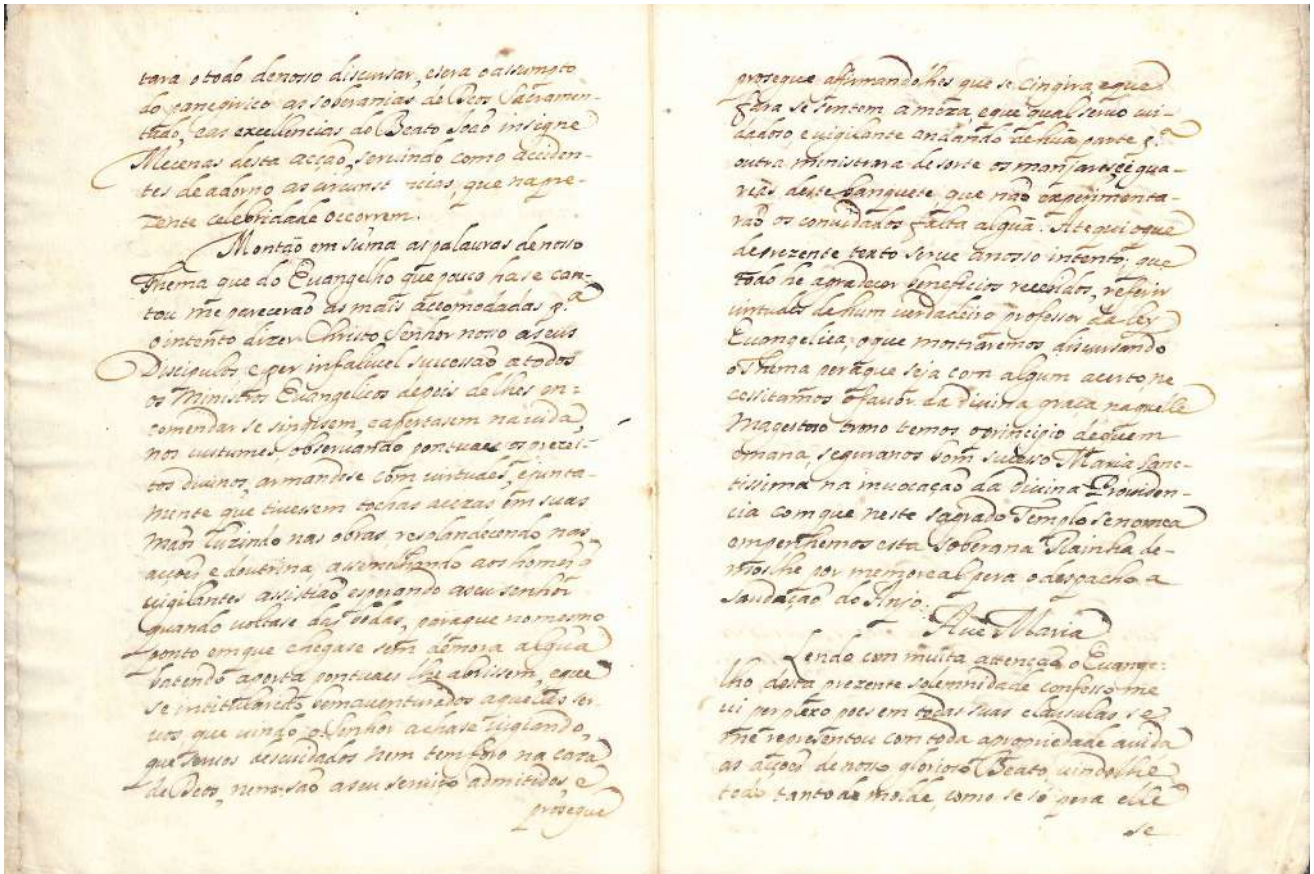 tara o todo de nosso discursar, e sera o assumpto
do panegirico as soberanias de Deos Sacramen-
tado, e as excellencias do Beato João insigne
Mecenas desta acção, servindo como acciden-
tes de adorno as circunst cias, que na pre-
zente celebridade occorrem.
Montão em suma as palavras de nosso
Thema que do Evangelho que pouco ha se can-
tou me parecerão as mais accomodadas p.ª
o intento dizer Christo Senhor nosso a seus
Discipulos, e per infalivel sucessão a todos
os Ministros Evangelicos depois de lhes en=
comendar se singisem, e apertasem na vida,
nos custumes, observando pontuaes os precei-
tos divinos, armandose com virtudes, e junta-
mente que tivessem tochas acezas em suas
mãos luzindo nas obras, resplandecendo nas
acções e doutrina, assemelhando aos homens q̃
vigilantes assistião esperando a seu senhor
quando voltase das vodas, peraque no mesmo
ponto em que chegase sem demora algũa
batendo a porta pontuaes lhe abrissem, e que
se intitularão bemaventurados aquelles ser-
vos, que vindo o Senhor achase vigiando,
que servos descuidados nem tem foro na caza
de Deos, nem são a seu serviço admitidos, e
prosegue
prosegue affirmandolhes que se cingira, e que
fara se sentem a meza, e que qual servo cui-
dadoso e vigilante andando de hũa parte p.ª
outra ministrara de sorte os manjares e igua-
rias deste banquete, que não experimenta-
rão os convidados falta algũa. Ate qui o que
de prezente texto serve a nosso intento, que
todo he agradecer beneficios recebidos, referir
virtudes de hum verdadeiro professor da ley
Evangelica, o que mostraremos discursando
o Thema peraque seja com algum acerto, ne
cessitamos o favor da divina graça naquelle
Magestoso trono temos o principio de quem
emana, seguranos bom sucesso Maria Sanc-
tissima na invocação da Divina Providen-
cia com que neste sagrado Templo se nomea
empenhemos esta soberana Rainha de-
moslhe por memoreal pera o despacho a
saudação do Anjo.
Ave Maria
Lendo com muita attenção o Evange=
lho desta prezente solemnidade confesso me
vi perplexo poes em todas suas clausulas se
me representou com toda apropriedade a vida
as acções de nosso glorioso Beato, vindolhe
todo tanto de molde, como se só pera elle
se